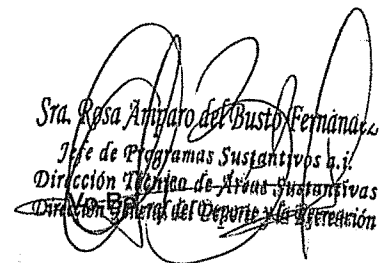 Sra. Rosa Amparo del Busto Fernández
Jefe de Programas Sustantivos a.i.
Dirección Técnica de Áreas Sustantivas
Vo.Bo.
Dirección General del Deporte y la Recreación